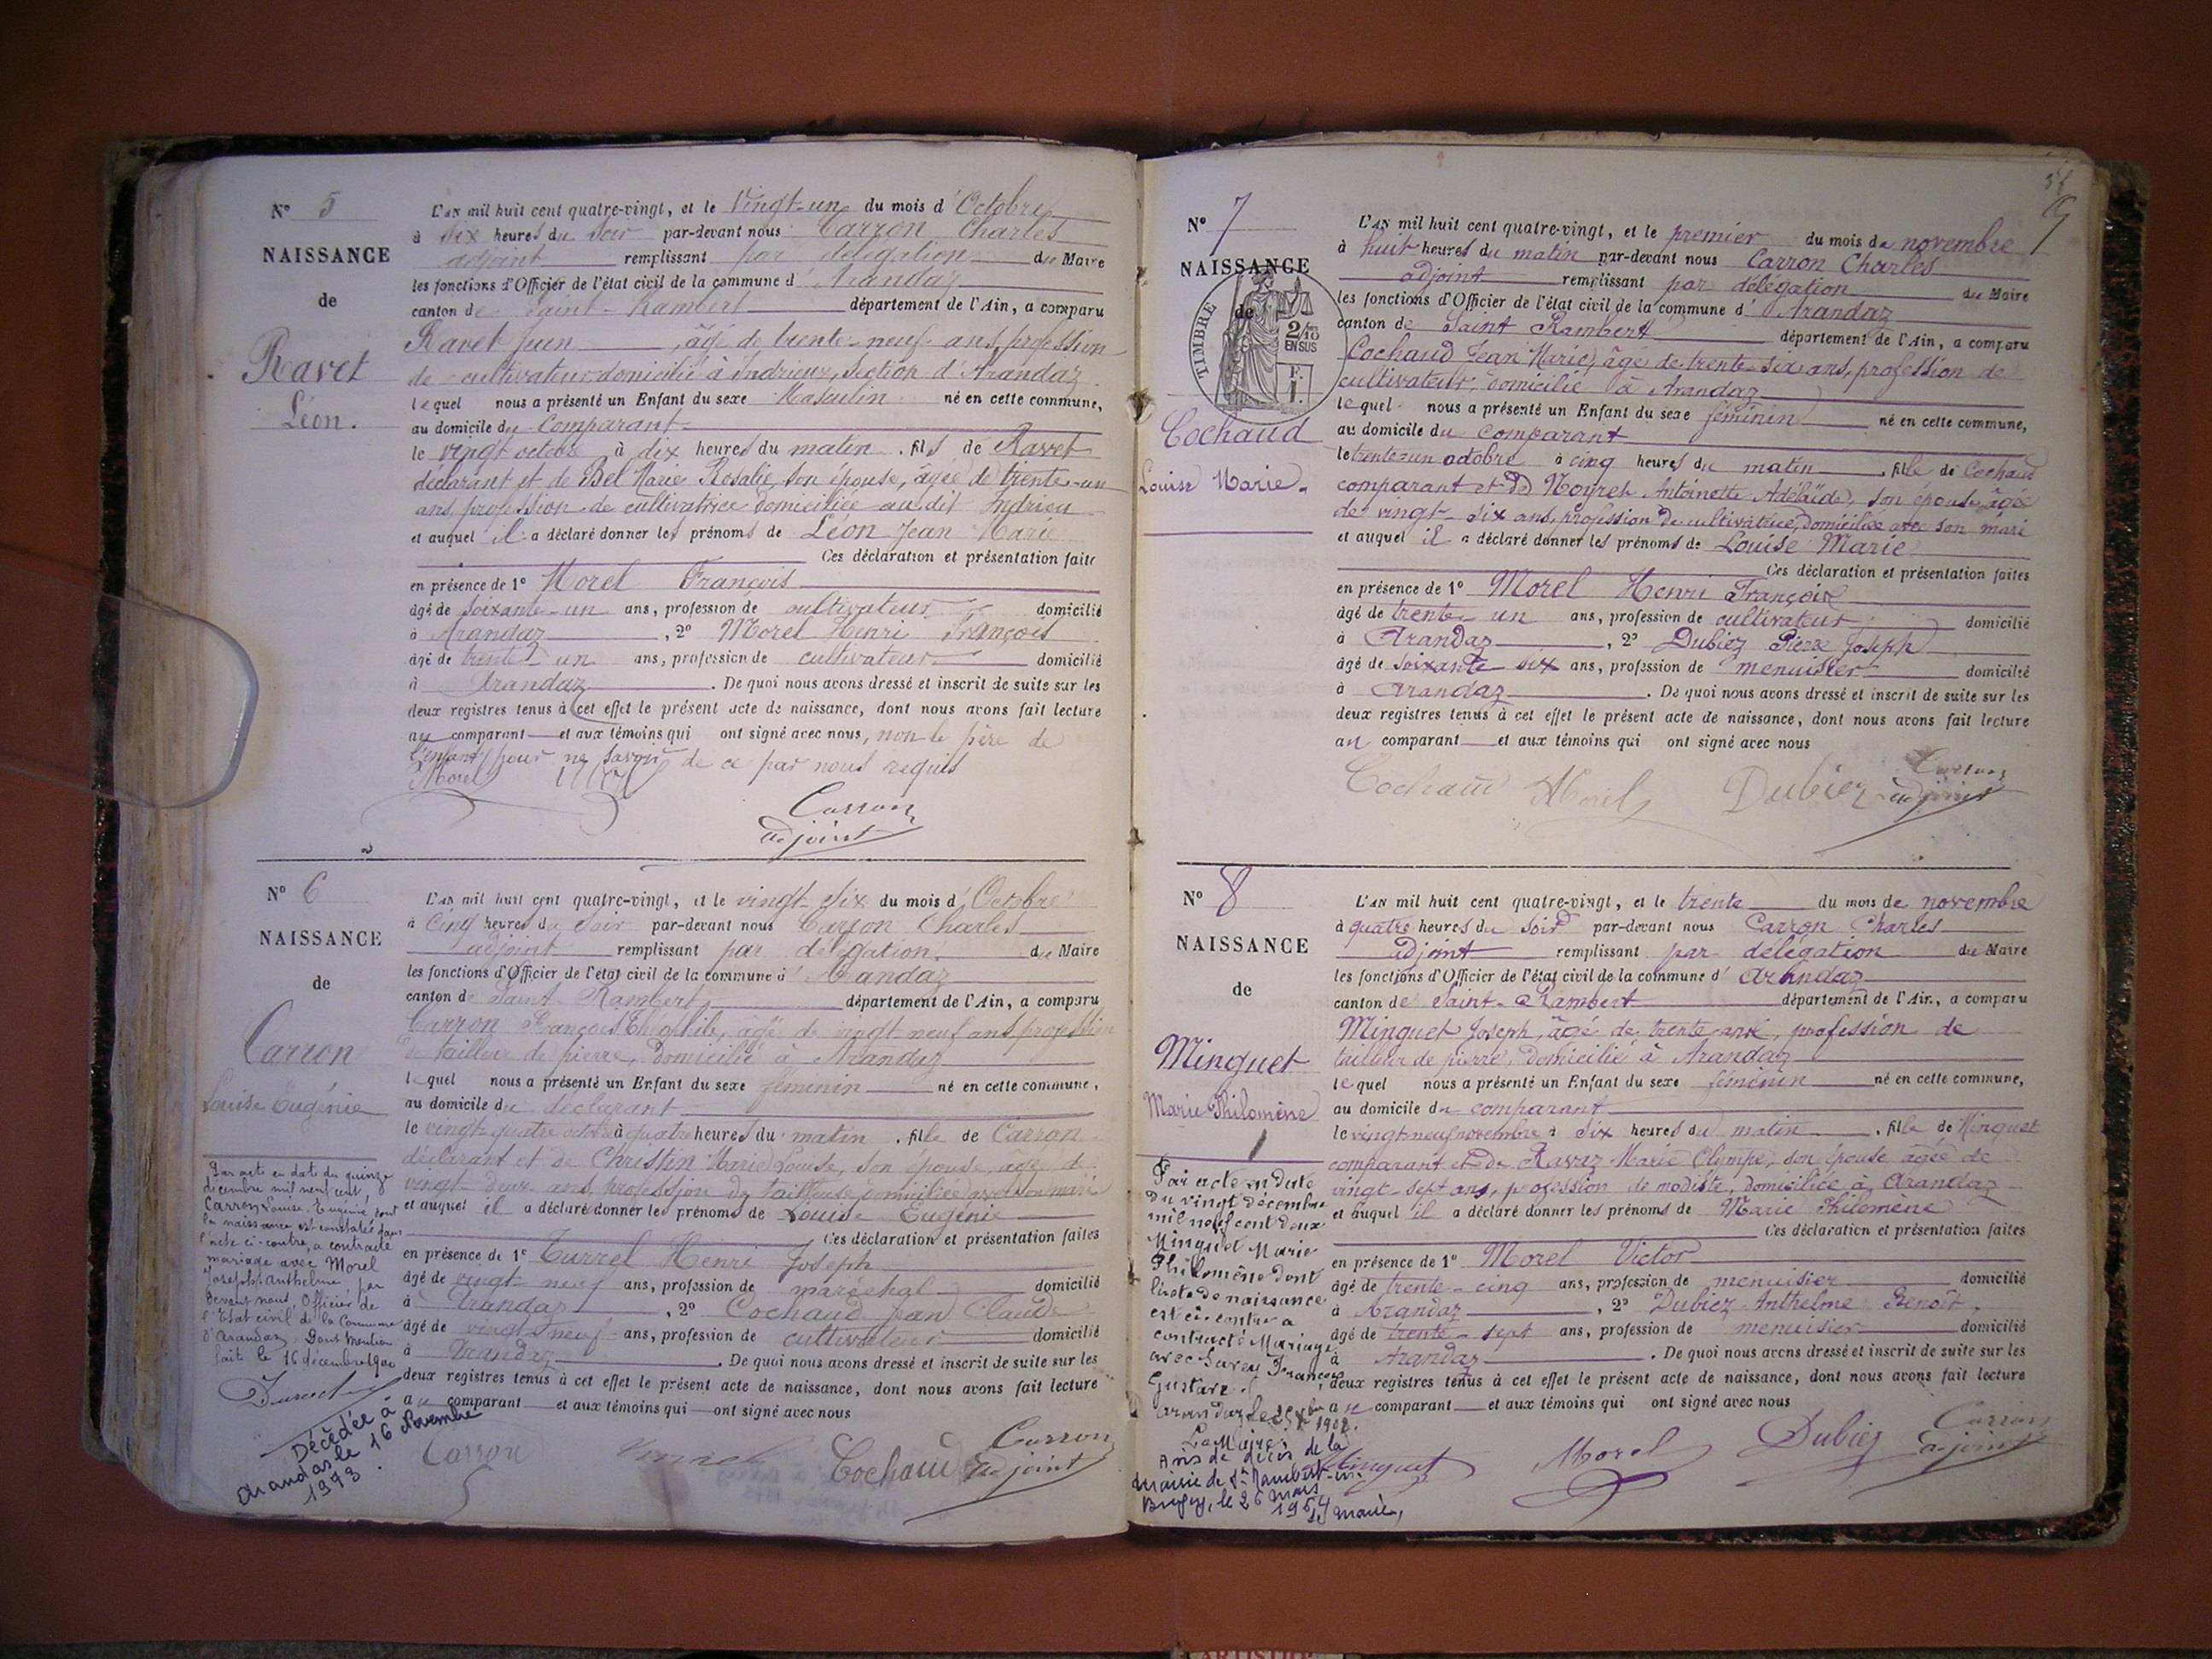 N° 5
NAISSANCE
de
Ravet
Léon.
L'an mil huit cent quatre-vingt, et le Vingt-un du mois d'Octobre
à six heures du soir par-devant nous Carron Charles
adjoint remplissant par délégation du Maire
les fonctions d'Officier de l'état civil de la commune d'Arandaz
canton de Saint-Rambert département de l'Ain, a comparu
Ravet , âgé de trente-neuf ans, profession
de cultivateur domicilié à Indrieux, Section d'Arandaz
lequel nous a présenté un Enfant du sexe Masculin né en cette commune,
au domicile du Comparant
le vingt octobre à dix heures du matin, fils de Ravet
déclarant et de Bel Marie Rosalie, son épouse, âgée de trente-un
ans, profession de cultivatrice domiciliée au dit Indrieu
et auquel il a déclaré donner les prénoms de Léon Jean Marie
Ces déclaration et présentation faite
en présence de 1° Morel François
âgé de soixante-un ans, profession de cultivateur domicilié
à Arandaz, 2° Morel Henri François
âgé de trente un ans, profession de cultivateur domicilié
à Arandaz. De quoi nous avons dressé et inscrit de suite sur les
deux registres tenus à cet effet le présent acte de naissance, dont nous avons fait lecture
au comparant et aux témoins qui ont signé avec nous, non le père de
l'enfant pour ne savoir de ce par nous requis
Morel
Carron
adjoint
N° 6
NAISSANCE
de
Carron
Louise Eugénie
L'an mil huit cent quatre-vingt, et le vingt-six du mois d'Octobre
à Cinq heures du soir par-devant nous Carron Charles
adjoint remplissant par délégation du Maire
les fonctions d'Officier de l'état civil de la commune d'Arandaz
canton de Saint-Rambert département de l'Ain, a comparu
Carron François Théophile, âgé de vingt neuf ans, profession
de tailleur de pierre, domicilié à Arandaz
lequel nous a présenté un Enfant du sexe féminin né en cette commune,
au domicile du déclarant
le vingt-quatre octobre à quatre heures du matin, fille de Carron
déclarant et de Christin Marie Louise, son épouse, âgée de
vingt-deux ans, profession de tailleuse domiciliée avec son mari
et auquel il a déclaré donner les prénoms de Louise Eugénie
Ces déclaration et présentation faites
en présence de 1° Turrel Henri Joseph
âgé de vingt neuf ans, profession de maréchal domicilié
à Arandaz, 2° Cochaud Jean Claude
âgé de vingt-neuf ans, profession de cultivateur domicilié
à Arandaz. De quoi nous avons dressé et inscrit de suite sur les
deux registres tenus à cet effet le présent acte de naissance, dont nous avons fait lecture
au comparant et aux témoins qui ont signé avec nous
Carron Cochaud Carron
adjoint
Par acte en date du quinze
décembre mil neuf cent,
Carron Louise Eugénie, dont
la naissance est constatée dans
l'acte ci-contre, a contracté
mariage avec Morel
Joseph Anthelme par
devant nous, Officier de
l'Etat civil de la Commune
d'Arandaz. Dont mention
faite le 16 décembre 1900
Décédée à
Arandas le 16 Novembre
1973.
N° 7
NAISSANCE
de
TIMBRE
2/10
EN SUS
F.
1.
Cochaud
Louise Marie.
L'an mil huit cent quatre-vingt, et le premier du mois de novembre
à huit heures du matin par-devant nous Carron Charles
adjoint remplissant par délégation du Maire
les fonctions d'Officier de l'état civil de la commune d'Arandaz
canton de Saint Rambert département de l'Ain, a comparu
Cochaud Jean Marie, âgé de trente-six ans, profession de
cultivateur, domicilié à Arandaz
lequel nous a présenté un Enfant du sexe féminin né en cette commune,
au domicile du comparant
le trente-un octobre à cinq heures du matin, fille de Cochaud
comparant et de Moyret Antoinette Adélaïde, son épouse âgée
de vingt-six ans, profession de cultivatrice, domiciliée avec son mari
et auquel il a déclaré donner les prénoms de Louise Marie
Ces déclaration et présentation faites
en présence de 1° Morel Henri François
âgé de trente un ans, profession de cultivateur domicilié
à Arandaz, 2° Dubiez Pierre Joseph
âgé de soixante six ans, profession de menuisier domicilié
à Arandaz. De quoi nous avons dressé et inscrit de suite sur les
deux registres tenus à cet effet le présent acte de naissance, dont nous avons fait lecture
au comparant et aux témoins qui ont signé avec nous
Cochaud Morel Dubiez Carron
adjoint
N° 8
NAISSANCE
de
Minguet
Marie Philomène
L'an mil huit cent quatre-vingt, et le trente du mois de novembre
à quatre heures du soir par-devant nous Carron Charles
adjoint remplissant par délégation du Maire
les fonctions d'Officier de l'état civil de la commune d'Arandaz
canton de Saint-Rambert département de l'Ain, a comparu
Minguet Joseph, âgé de trente ans, profession de
tailleur de pierre, domicilié à Arandaz
lequel nous a présenté un Enfant du sexe féminin né en cette commune,
au domicile du comparant
le vingt-neuf novembre à six heures du matin, fille de Minguet
comparant et de Ravaz Marie Olimpe, son épouse âgée de
vingt-sept ans, profession de modiste, domiciliée à Arandaz
et auquel il a déclaré donner les prénoms de Marie Philomène
Ces déclaration et présentation faites
en présence de 1° Morel Victor
âgé de trente-cinq ans, profession de menuisier domicilié
à Arandaz, 2° Dubiez Anthelme Benoît,
âgé de trente-sept ans, profession de menuisier domicilié
à Arandaz. De quoi nous avons dressé et inscrit de suite sur les
deux registres tenus à cet effet le présent acte de naissance, dont nous avons fait lecture
au comparant et aux témoins qui ont signé avec nous
Minguet Morel Dubiez Carron
adjoint
Par acte en date
du vingt décembre
mil neuf cent deux
Minguet Marie
Philomène dont
l'acte de naissance
est ci-contre a
contracté Mariage
avec François
Gustave
Arandaz le 1902.
Le Maire,
Avis de décès de la
Mairie de St Rambert-en-
Bugey, le 26 mars
1954